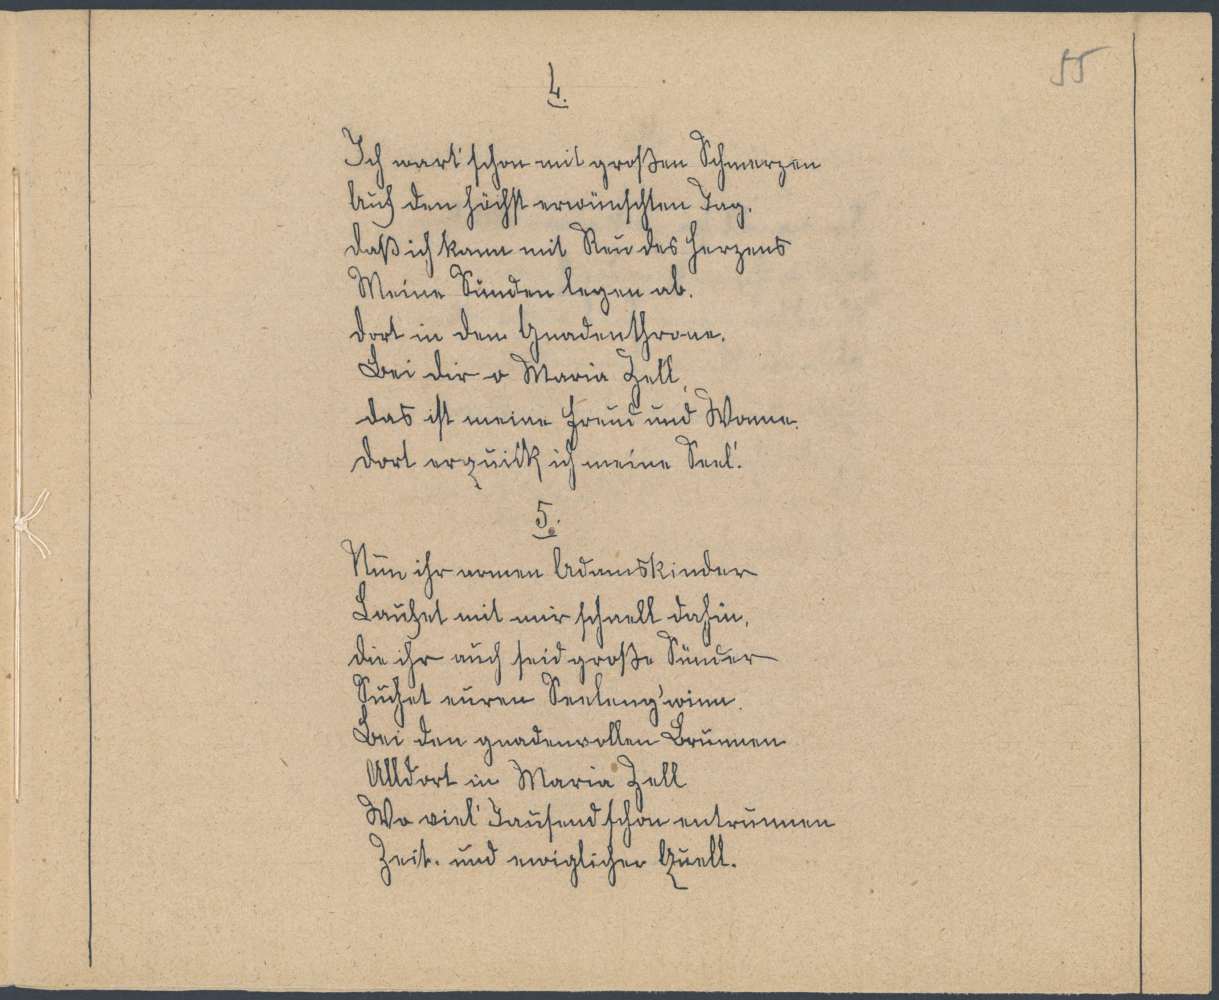 55
4.
Ich wart' schon mit großen Schmerzen
Auf den höchst erwünschten Tag.
daß ich kann mit Reu des Herzens
Meine Sünden legen ab.
dort in dem Gnadenthrone.
Bei dir o Maria Zell
das ist meine Freud und Wonne.
dort erquick ich meine Seel'.
5.
Nun ihr armen Adamskinder
Laufet mit mir schnell dahin,
die ihr auch seid große Sünder
Suchet euren Seeleng'winn.
Bei den gnadenvollen Brunnen
Alldort in Maria Zell
Wo viel Tausend schon entrunnen
Zeit. und ewiglicher Quell.